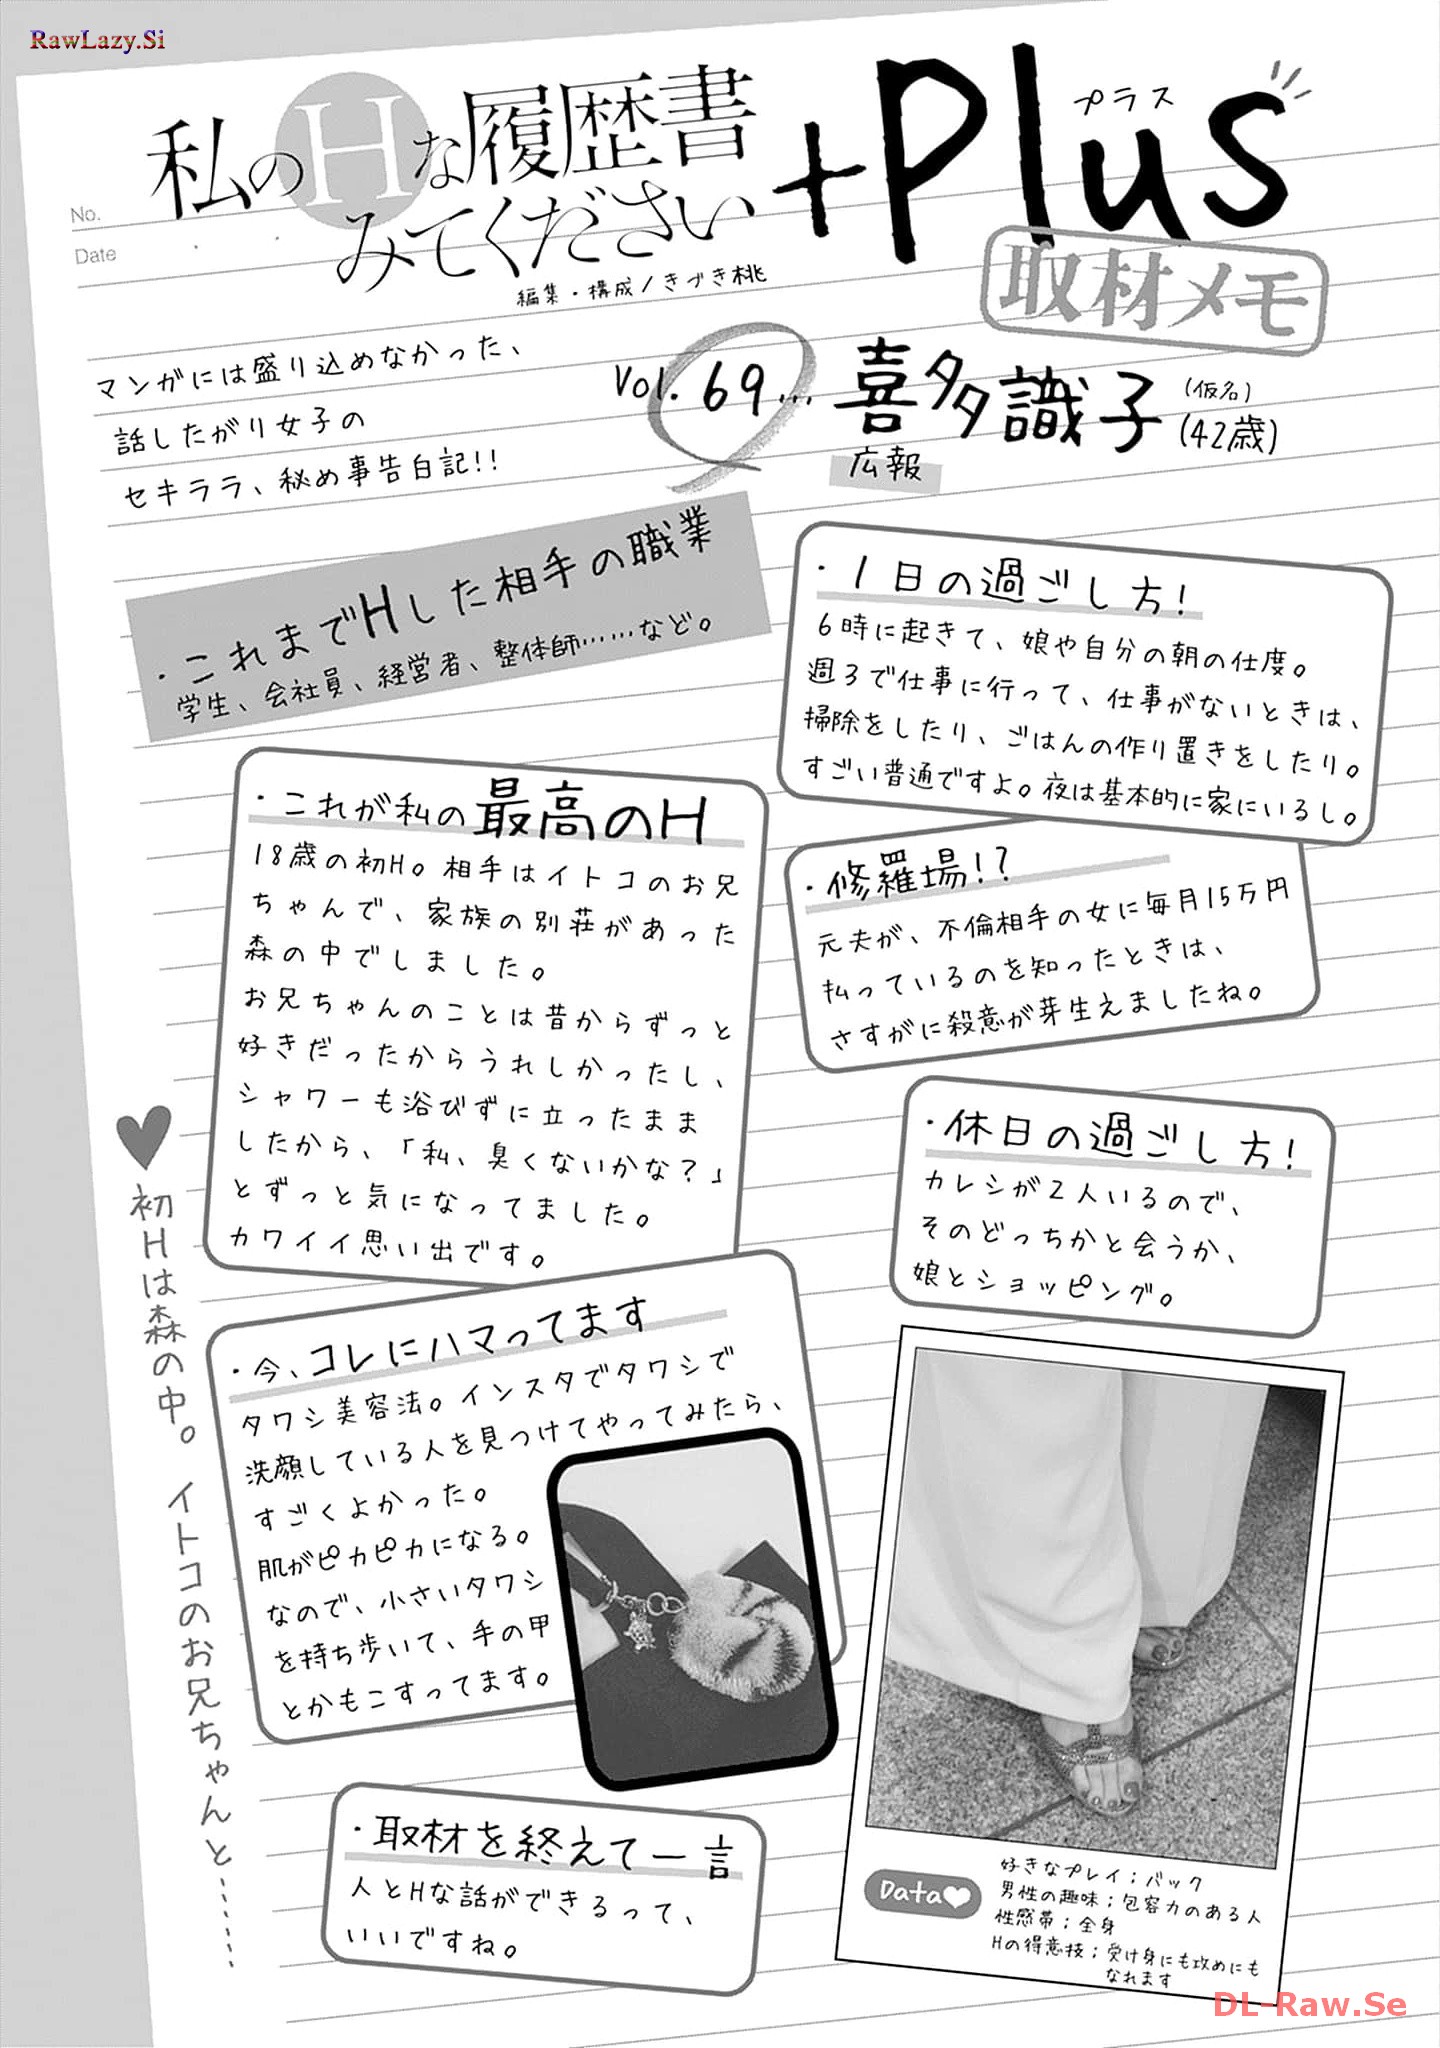 RawLazy.Si
No.
Date
私のHな履歴書
みてください
+Plus
プラス
編集・構成/きづき桃
取材メモ
マンガには盛り込めなかった、
話したがり女子の
セキララ、秘め事告白記!!
Vol.69…
喜多識子
(仮名)
(42歳)
広報
・これまでHした相手の職業
学生、会社員、経営者、整体師……など。
・1日の過ごし方!
6時に起きて、娘や自分の朝の仕度。
週3で仕事に行って、仕事がないときは、
掃除をしたり、ごはんの作り置きをしたり。
すごい普通ですよ。夜は基本的に家にいるし。
・これが私の最高のH
18歳の初H。相手はイトコのお兄
ちゃんで、家族の別荘があった
森の中でしました。
お兄ちゃんのことは昔からずっと
好きだったからうれしかったし、
シャワーも浴びずに立ったまま
したから、「私、臭くないかな?」
とずっと気になってました。
カワイイ思い出です。
・修羅場!?
元夫が、不倫相手の女に毎月15万円
払っているのを知ったときは、
さすがに殺意が芽生えましたね。
・休日の過ごし方!
カレシが2人いるので、
そのどっちかと会うか、
娘とショッピング。
♥初Hは森の中。イトコのお兄ちゃんと……
・今、コレにハマってます
タワシ美容法。インスタでタワシで
洗顔している人を見つけてやってみたら、
すごくよかった。
肌がピカピカになる。
なので、小さいタワシ
を持ち歩いて、手の甲
とかもこすってます。
・取材を終えて一言
人とHな話ができるって、
いいですね。
Data♥
好きなプレイ;バック
男性の趣味;包容力のある人
性感帯;全身
Hの得意技;受け身にも攻めにも
なれます
DL-Raw.Se